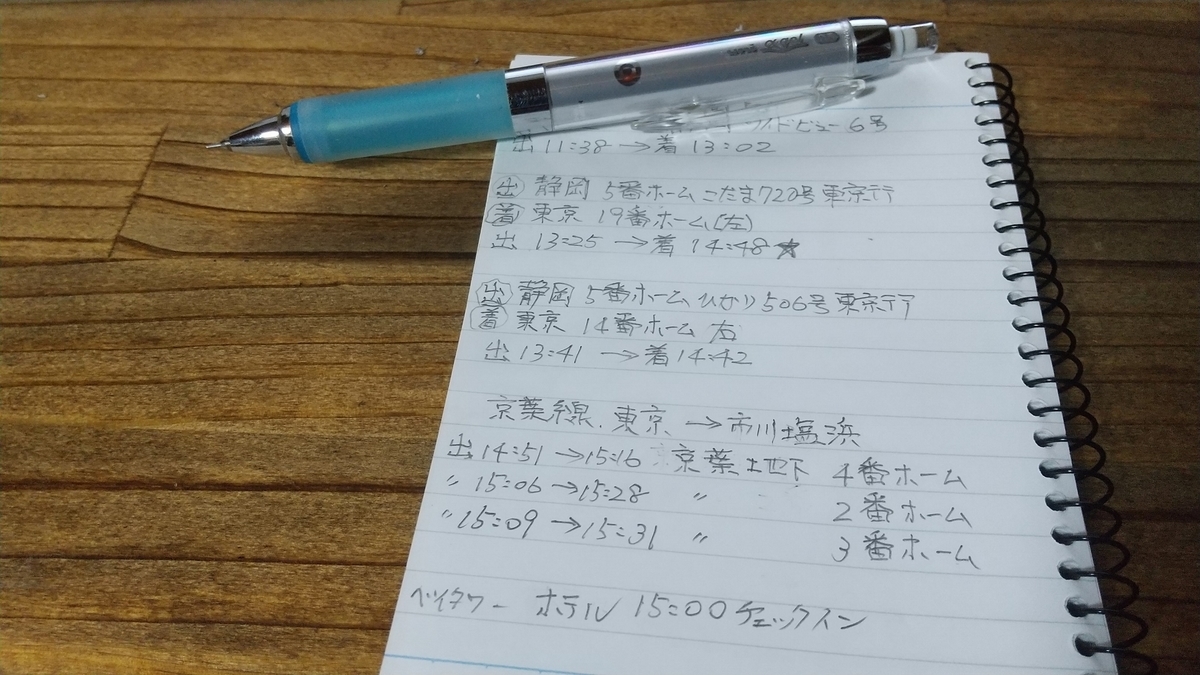 ワイドビュー 6号
出 11:38 → 着 13:02
出 静岡 5番ホーム こだま722号 東京行
着 東京 19番ホーム(左)
出 13:25 → 着 14:48 ★
出 静岡 5番ホーム ひかり506号 東京行
着 東京 14番ホーム 右
出 13:41 → 着 14:42
京葉線.東京 → 市川塩浜
出 14:51 → 15:16 京葉地下 4番ホーム
〃 15:06 → 15:28 〃 2番ホーム
〃 15:09 → 15:31 〃 3番ホーム
ベイタワー ホテル 15:00 チェックイン